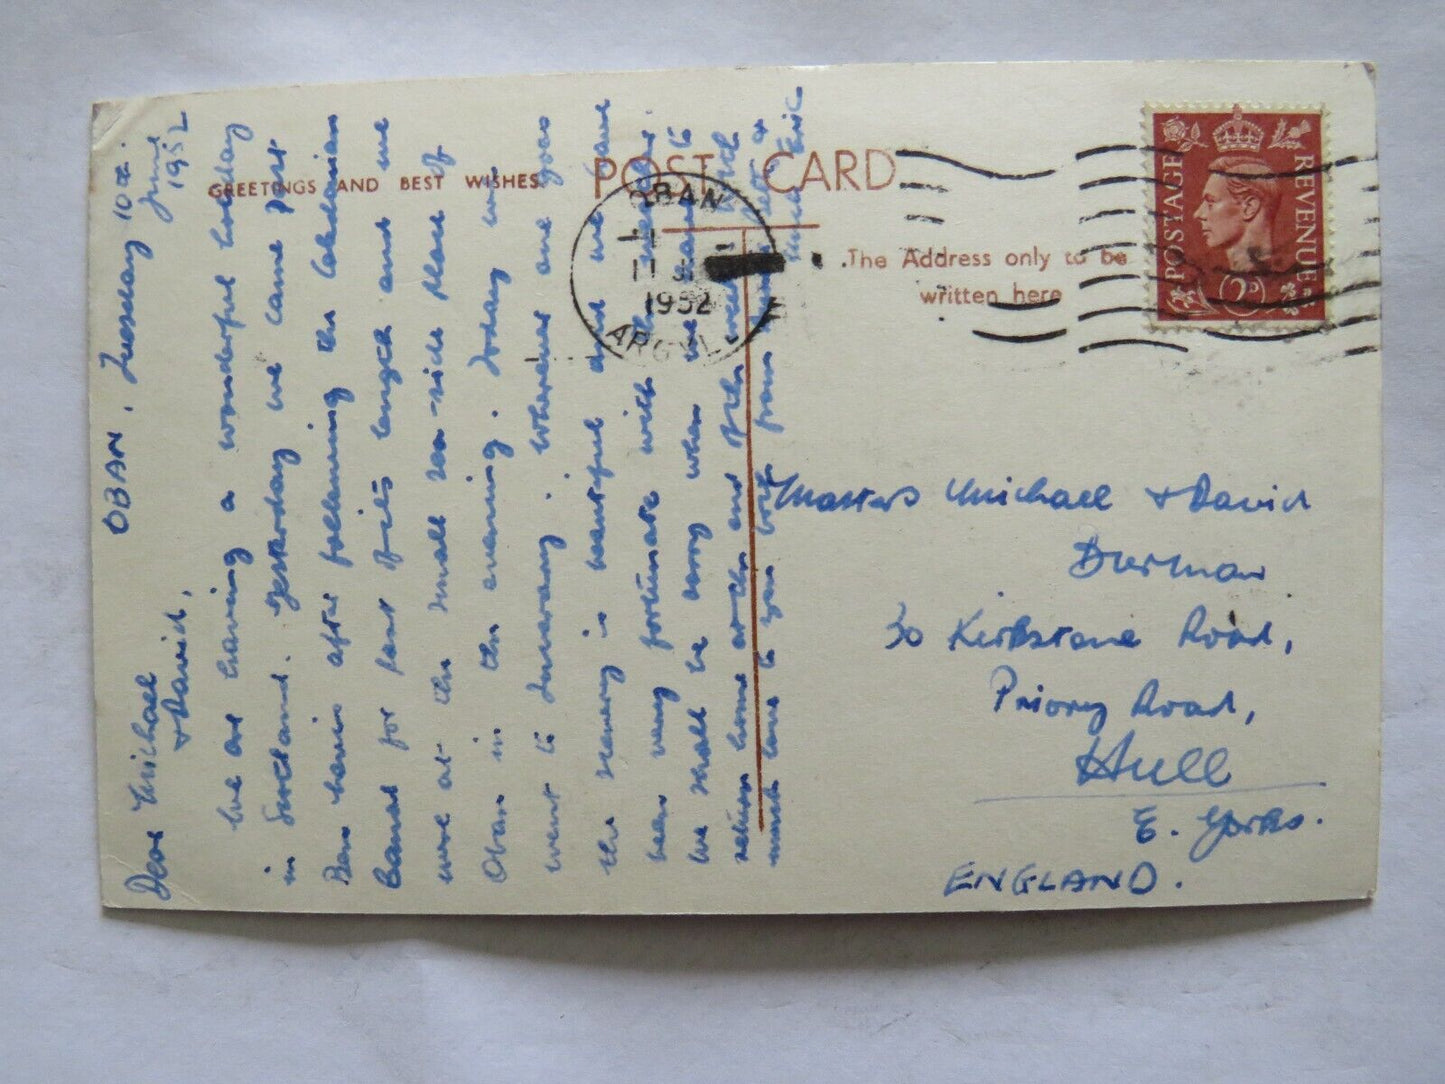 GREETINGS AND BEST WISHES.
POST CARD
The Address only to be
written here
OBAN
11
1952
ARGYLL
POSTAGE REVENUE
2D
OBAN, Tuesday 10th
June
1952
Dear Michael
+ David,
We are having a wonderful holiday
in Scotland. Yesterday we came past
Ben Nevis after following the Caledonian
Canal for part of its length and we
were at the small sea-side place of
Oban in the evening. Today we
went to Inveraray. Wherever one goes
the scenery is beautiful and we have
been very fortunate with the weather.
We shall be sorry when we have to
return home at the end of the week. With
much love to you both from
Eric
Masters Michael + David
Durman
30 Kirkstone Road,
Priory Road,
Hull
E. Yorks.
ENGLAND.